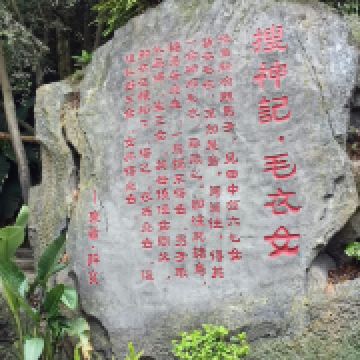 搜神記·毛衣女
豫章新喻縣男子，見田中有六七女
皆衣毛衣，不知是鳥，匍匐往，得其
一女所解毛衣，取藏之，即往就諸鳥，
諸鳥各飛去，一鳥獨不得去，男子取
以為婦，生三女，其母後使女問父，
知衣在積稻下，得之，衣而飛去，後
以衣迎三女，女亦得飛去
—東晉·干寶